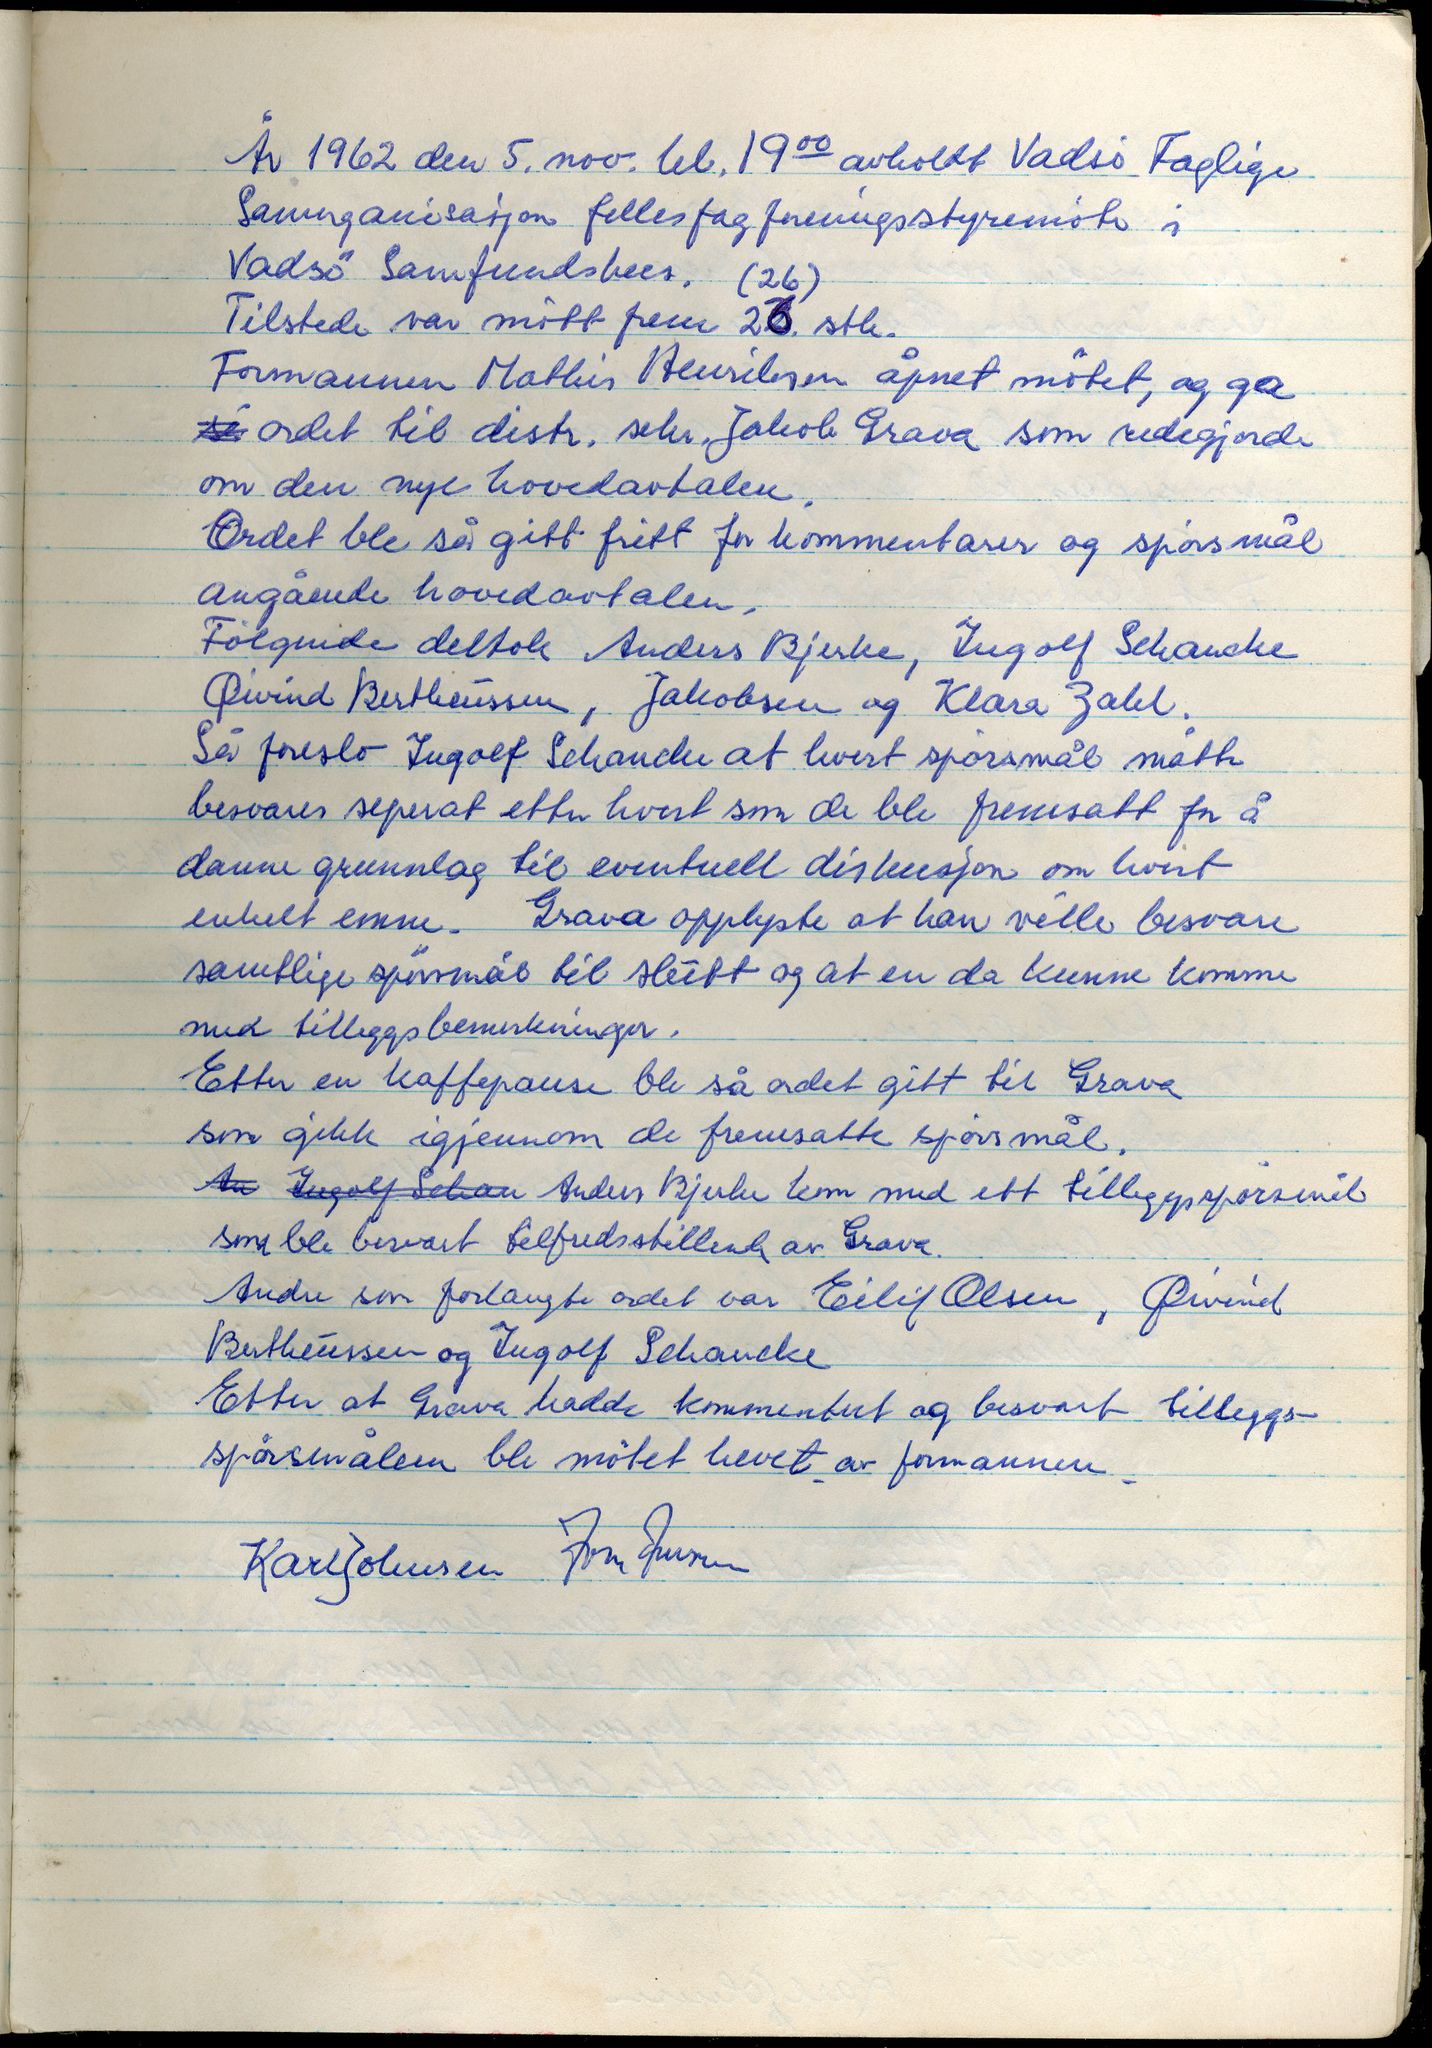 År 1962 den 5. nov. kl. 19⁰⁰ avholdt Vadsö Faglige
Samorganisasjon fellesfagforeningsstyremöte i
Vadsö Samfundshus. (26)
Tilstede var mött frem 26. stk.
Formannen Mathis Henriksen åpnet mötet, og ga
ordet til distr. sekr. Jakob Grava som redegjorde
om den nye hovedavtalen.
Ordet ble så gitt fritt for kommentarer og spörsmål
angående hovedavtalen.
Fölgende deltok Anders Bjerke, Ingolf Schancke
Øivind Bertheussen, Jakobsen og Klara Zahl.
Så foreslo Ingolf Schancke at hvert spörsmål måtte
besvares seperat etter hvert som de ble fremsatt for å
danne grunnlag til eventuell diskusjon om hvert
enkelt emne. Grava opplyste at han ville besvare
samtlige spörsmål til slutt og at en da kunne komme
med tilleggsbemerkninger.
Etter en kaffepause ble så ordet gitt til Grava
som gikk igjennom de fremsatte spörsmål.
An Ingolf Schan Anders Bjerke kom med ett tilleggsspörsmål
som ble besvart tilfredsstillende av Grava.
Andre som forlangte ordet var Eilif Olsen, Øivind
Bertheussen og Ingolf Schancke
Etter at Grava hadde kommentert og besvart tilleggs-
spörsmålene ble mötet hevet av formannen.
Karl Johnsen